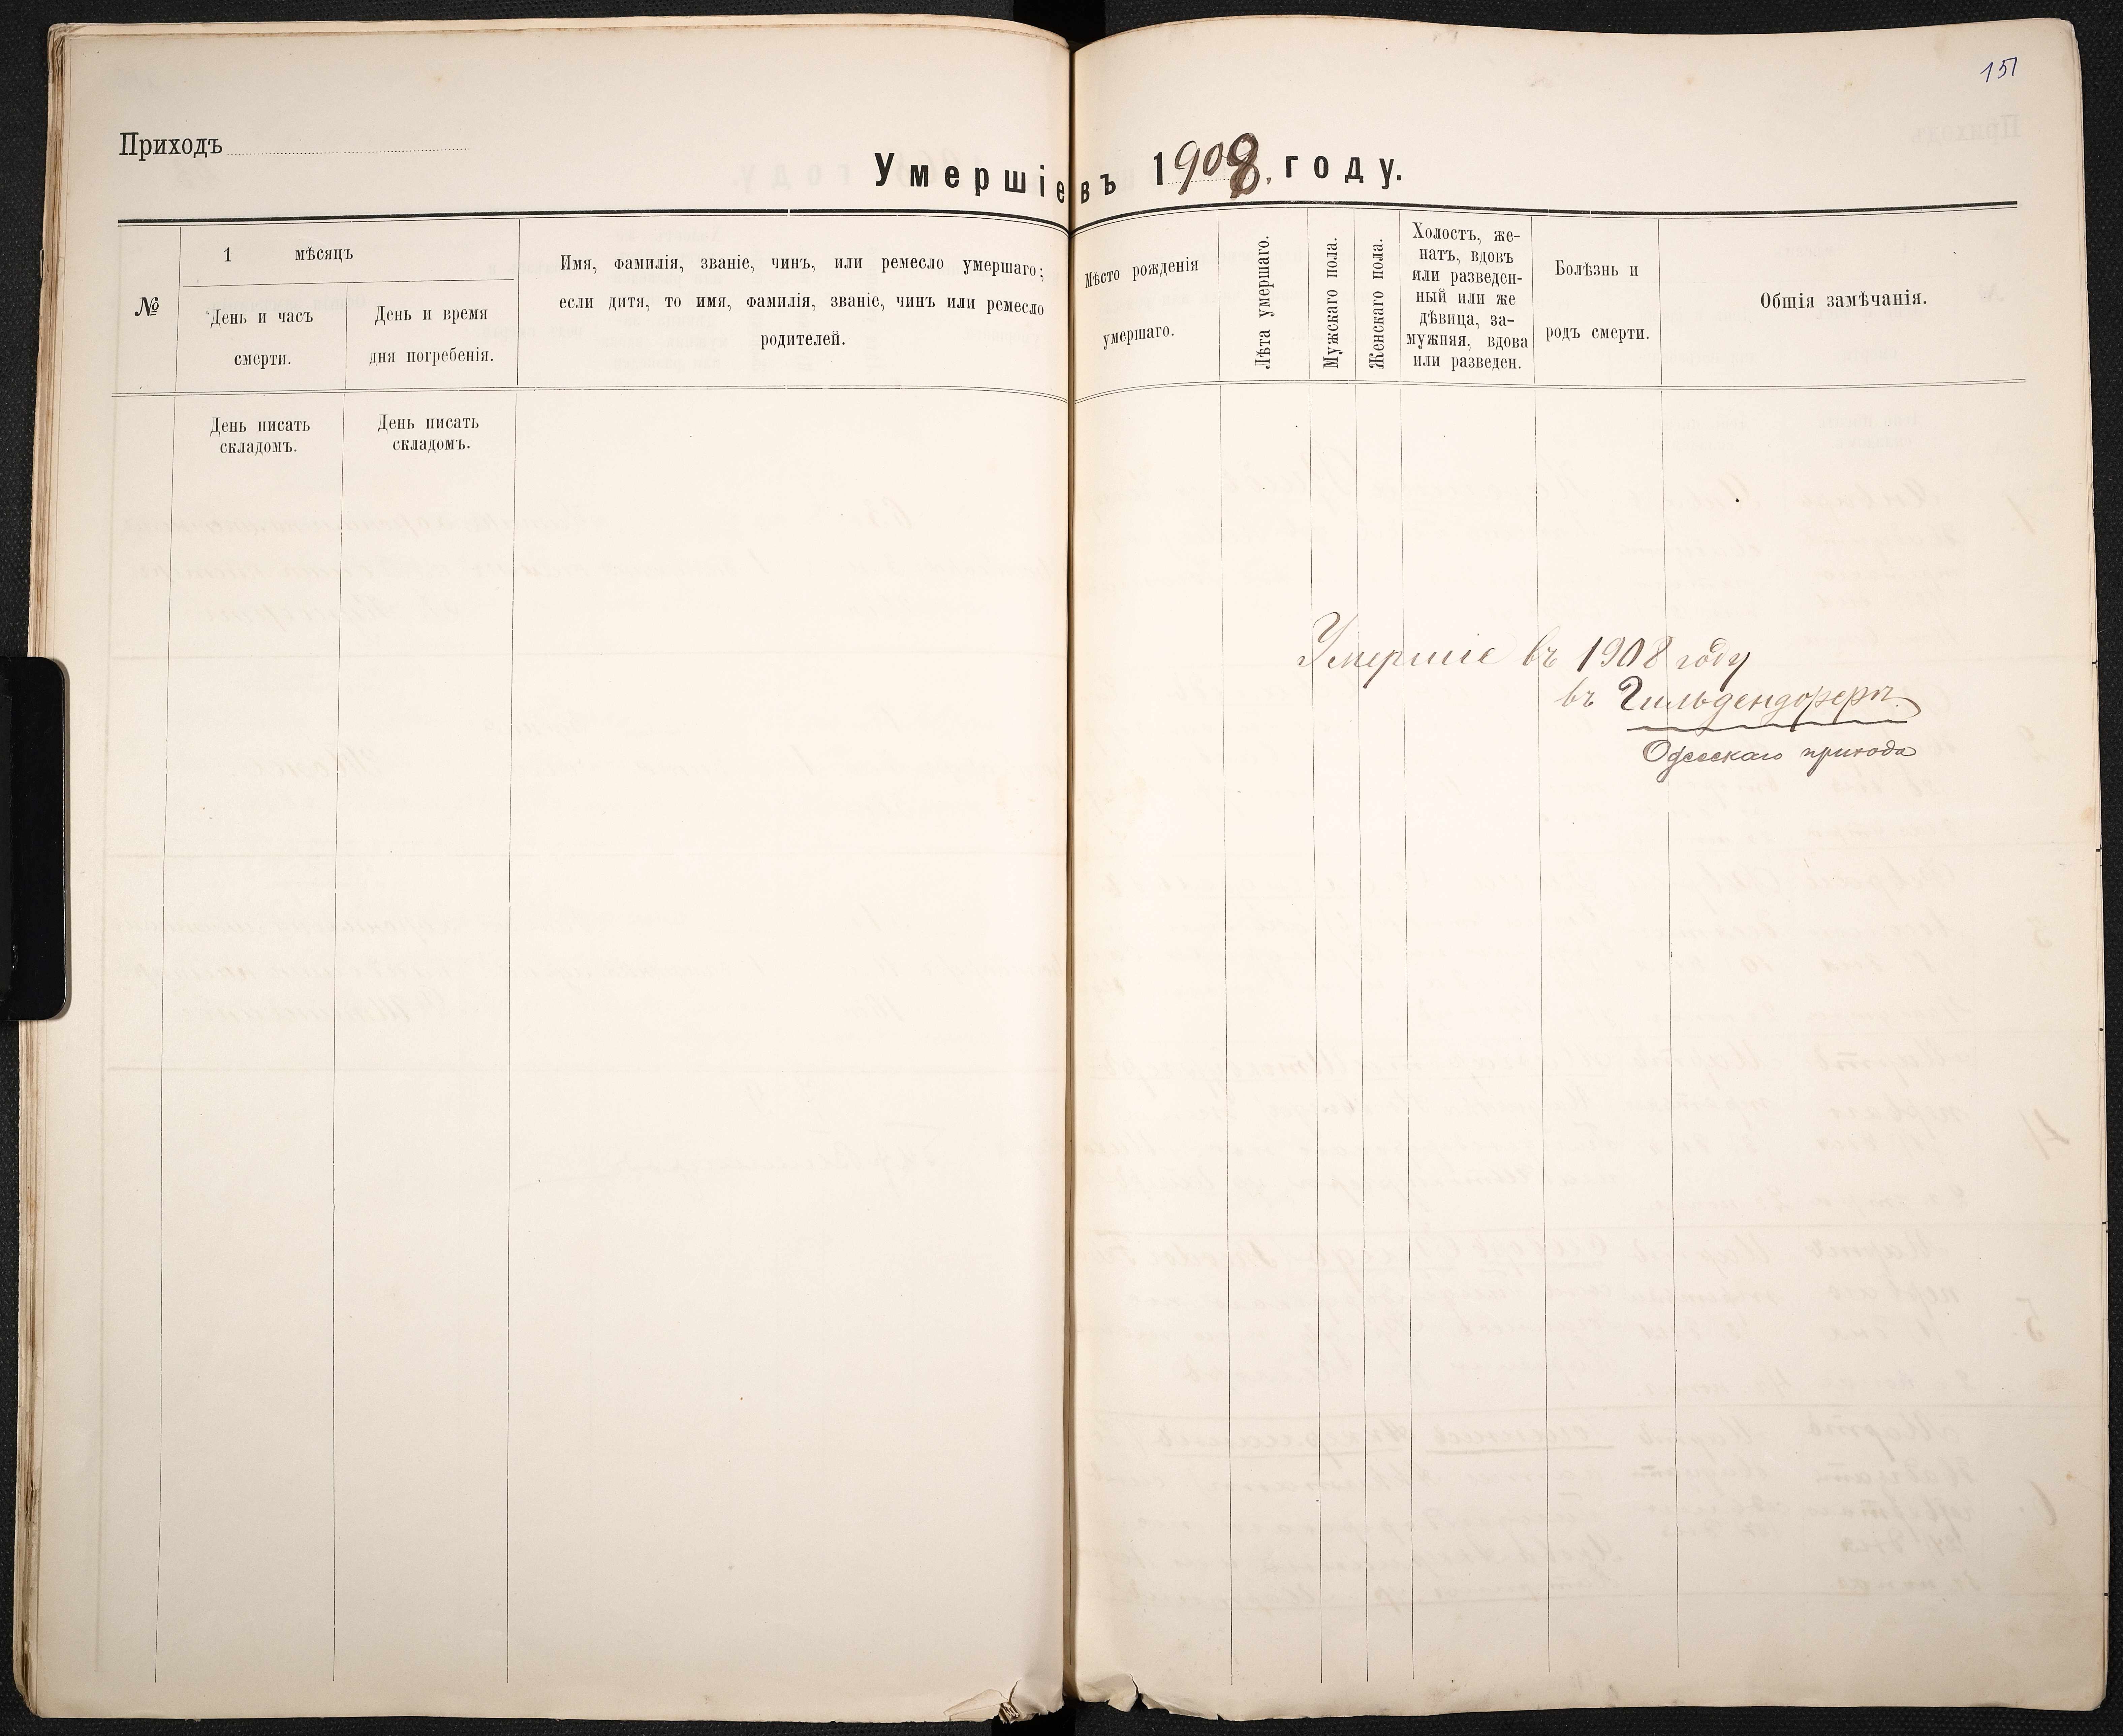 151
Приходъ
Умершіе въ 1908, году.
№
1 мѣсяцъ
День и часъ
смерти.
День и время
дня погребенія.
Имя, фамилія, званіе, чинъ, или ремесло умершаго;
если дитя, то имя, фамилія, званіе, чинъ или ремесло
родителей.
Мѣсто рожденія
умершаго.
Лѣта умершаго.
Мужскаго пола.
Женскаго пола.
Холостъ, же-
натъ, вдовъ
или разведен-
ный или же
дѣвица, за-
мужняя, вдова
или разведен.
Болѣзнь и
родъ смерти.
Общія замѣчанія.
День писать
складомъ.
День писать
складомъ.
Умершіе въ 1908 году
въ Гильдендорфѣ
Одесскаго прихода